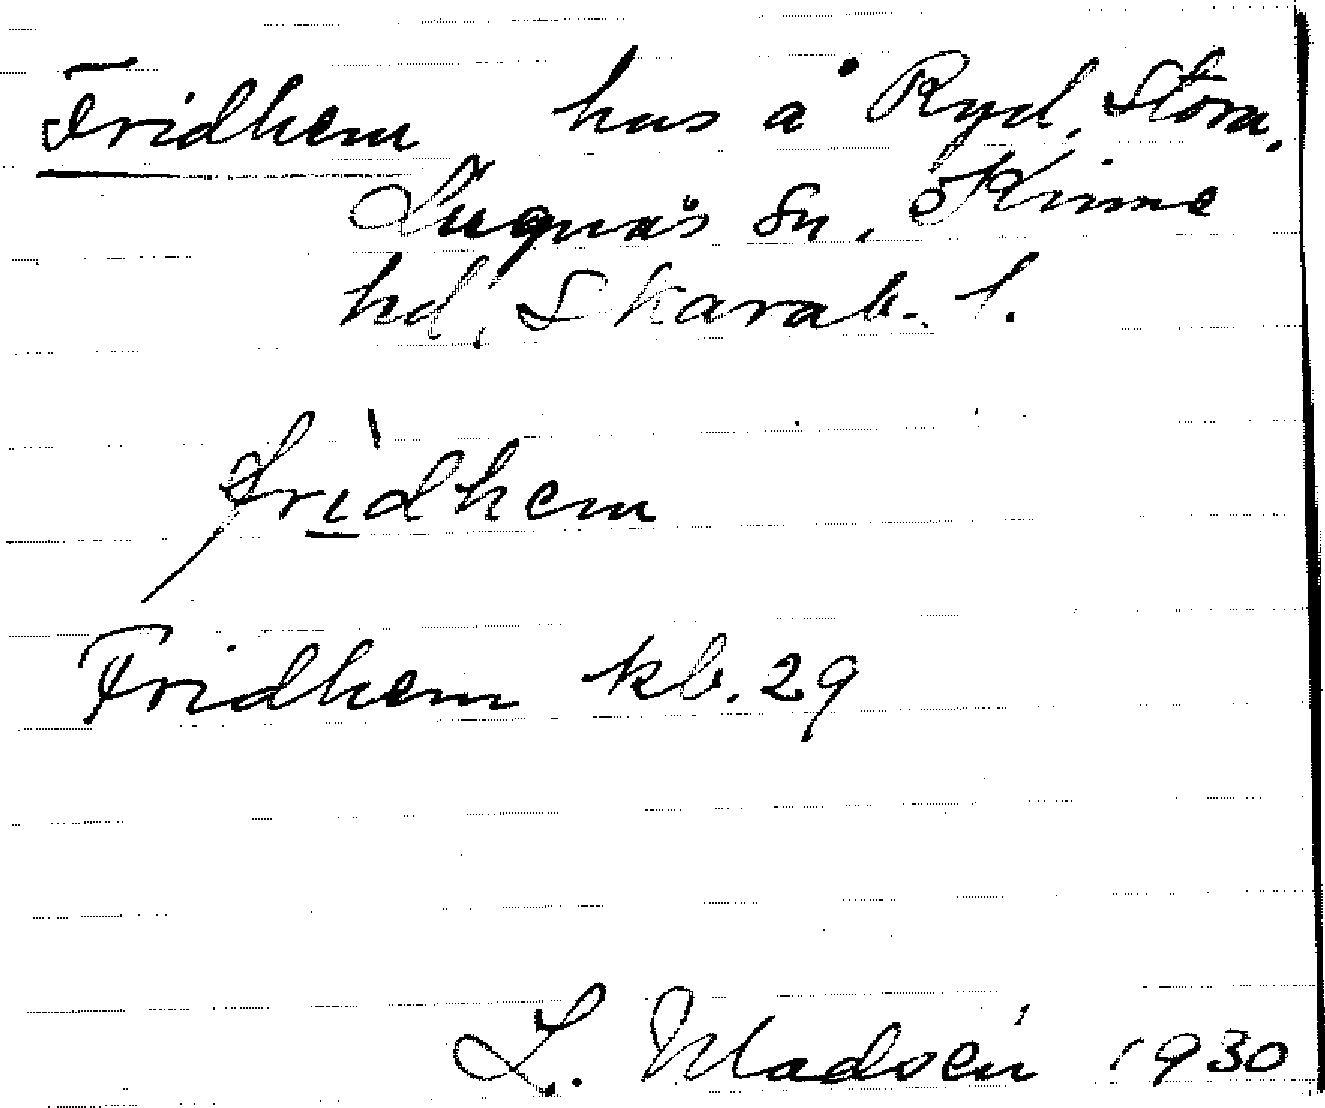 Fridhem hus å Ryd, Stora,
Lugnås sn. Kinne
hd, Skarab. l.
fridhem
Fridhem kb. 29
L. 1930